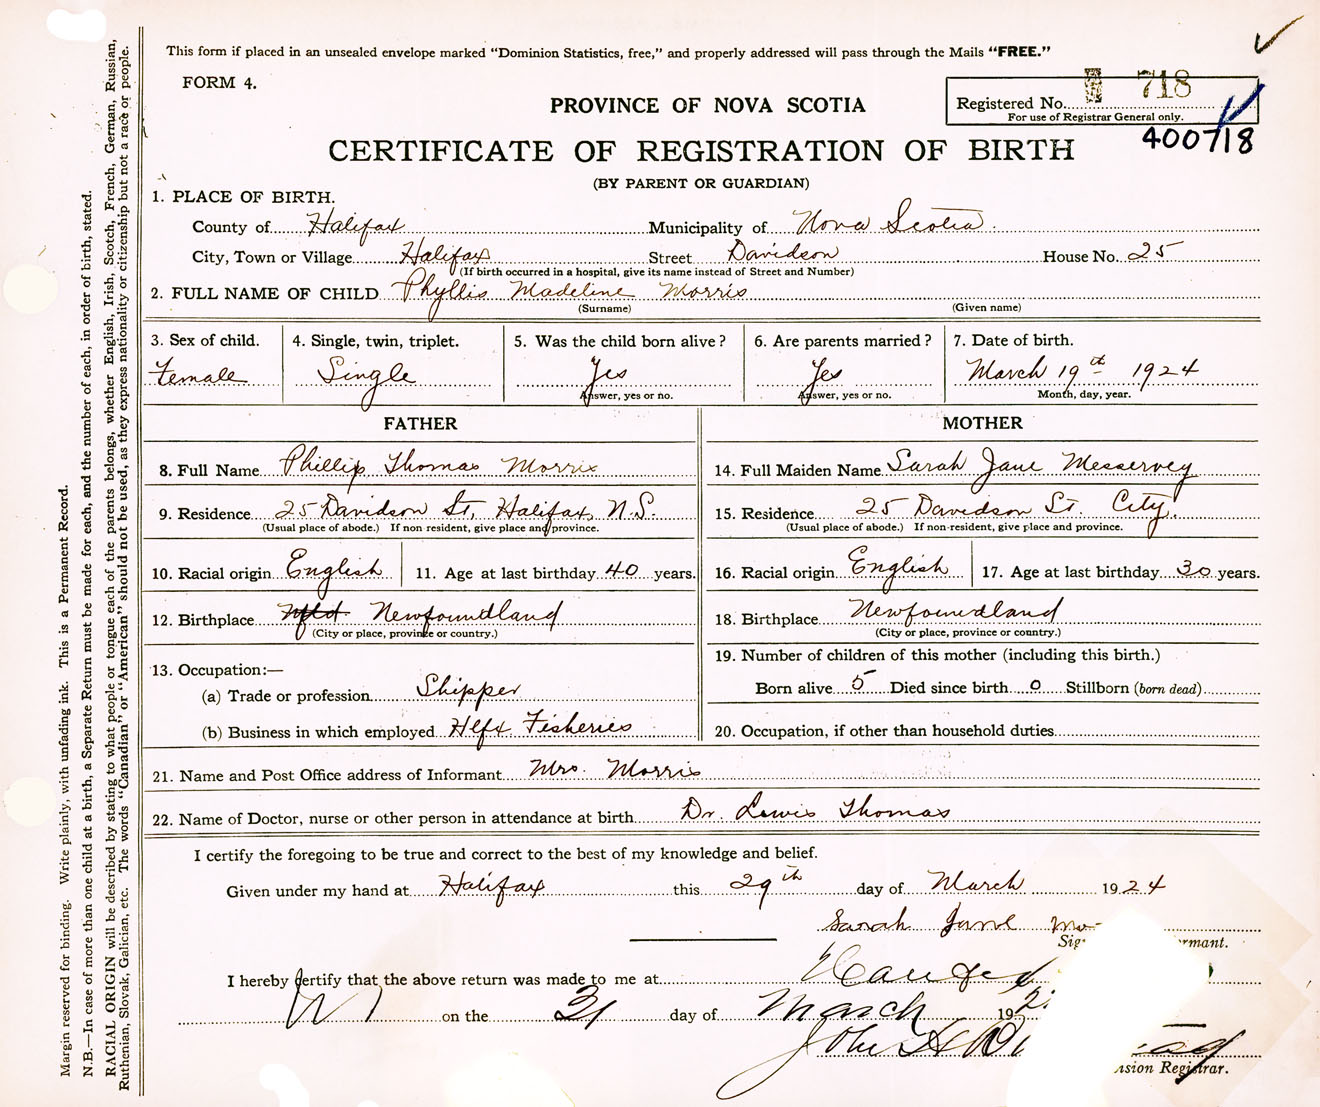 This form if placed in an unsealed envelope marked "Dominion Statistics, free," and properly addressed will pass through the Mails "FREE."
FORM 4.
Registered No. 718
For use of Registrar General only.
400718
PROVINCE OF NOVA SCOTIA
CERTIFICATE OF REGISTRATION OF BIRTH
(BY PARENT OR GUARDIAN)
1. PLACE OF BIRTH.
County of Halifax Municipality of Nova Scotia
City, Town or Village Halifax Street Davidson House No. 25
(If birth occurred in a hospital, give its name instead of Street and Number)
2. FULL NAME OF CHILD Phyllis Madeline Morris
(Surname) (Given name)
3. Sex of child. 4. Single, twin, triplet. 5. Was the child born alive? 6. Are parents married? 7. Date of birth.
Female Single Yes Yes March 19th 1924
Answer, yes or no. Answer, yes or no. Month, day, year.
FATHER
8. Full Name Phillip Thomas Morris
9. Residence 25 Davidson St, Halifax, N.S.
(Usual place of abode.) If non resident, give place and province.
10. Racial origin English 11. Age at last birthday 40 years.
12. Birthplace Nfld Newfoundland
(City or place, province or country.)
13. Occupation:—
(a) Trade or profession Shipper
(b) Business in which employed Hlfx Fisheries
MOTHER
14. Full Maiden Name Sarah Jane Messervey
15. Residence 25 Davidson St. City.
(Usual place of abode.) If non-resident, give place and province.
16. Racial origin English 17. Age at last birthday 30 years.
18. Birthplace Newfoundland
(City or place, province or country.)
19. Number of children of this mother (including this birth.)
Born alive 5 Died since birth 0 Stillborn (born dead)
20. Occupation, if other than household duties
21. Name and Post Office address of Informant Mrs. Morris
22. Name of Doctor, nurse or other person in attendance at birth Dr. Lewis Thomas
I certify the foregoing to be true and correct to the best of my knowledge and belief.
Given under my hand at Halifax this 29th day of March 1924
Sarah Jane
I hereby certify that the above return was made to me at
on the 31 day of March 192
John
Registrar.
Margin reserved for binding. Write plainly, with unfading ink. This is a Permanent Record.
N.B.—In case of more than one child at a birth, a Separate Return must be made for each, and the number of each, in order of birth, stated.
RACIAL ORIGIN will be described by stating to what people or tongue each of the parents belongs, whether English, Irish, Scotch, French, German, Russian,
Ruthenian, Slovak, Galician, etc. The words "Canadian" or "American" should not be used, as they express nationality or citizenship but not a race or people.